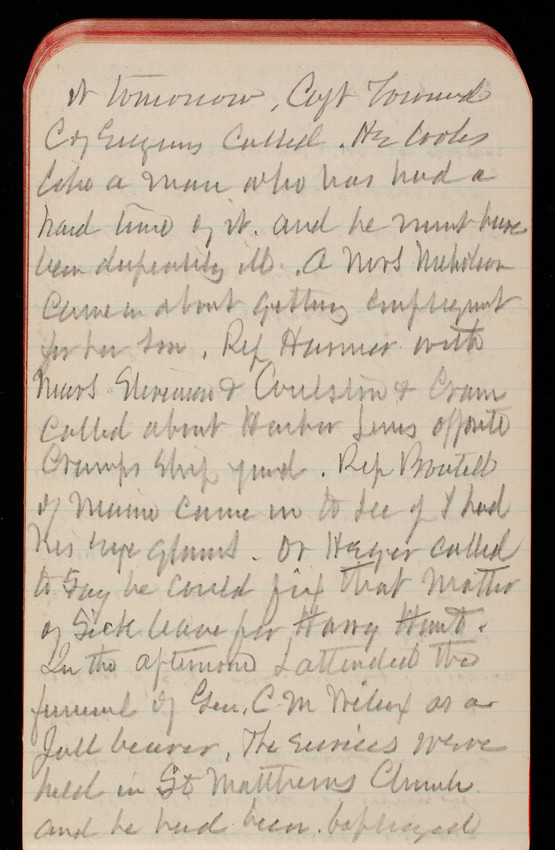 it tomorrow. Capt Townsend
Of Engrns Called. He looks
like a man who has had a
hard time of it. and he must have
been desperately ill. A Mrs Nicholson
Came in about getting employment
for her son. Rep Harmer with
Messrs & Coulston & Cram
called about Harbor lines opposite
Cramps Ship yard. Rep Boutell
of Maine came in to see if I had
his eye glasses. Dr Heger called
to say he could fix that matter
of Sick leave for Harry Hunt.
In the afternoon I attended the
funeral of Gen. C. M Wilcox as a
Pall bearer. The services were
held in St Matthews Church
and he had been baptized